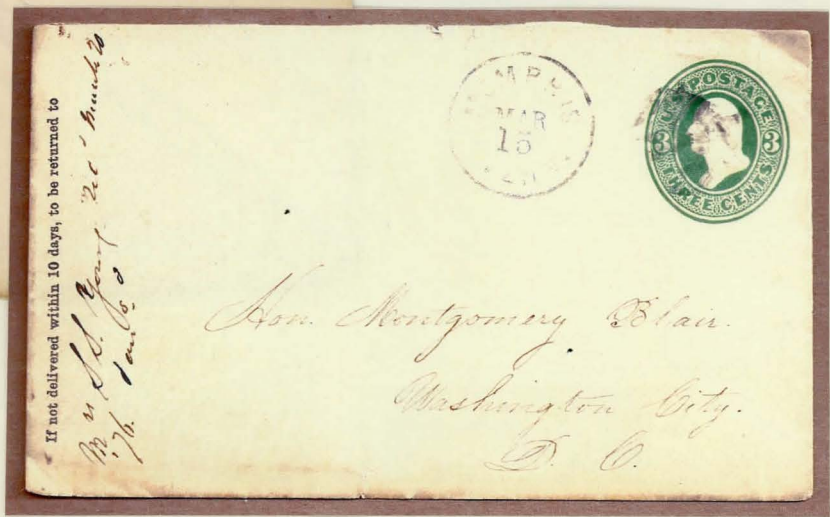 If not delivered within 10 days, to be returned to
Mrs S. S. Young rec'd March 20
'76.
MEMPHIS
MAR
15
TENN.
U.S. POSTAGE
3 3
THREE CENTS
Hon. Montgomery Blair.
Washington City.
D. C.